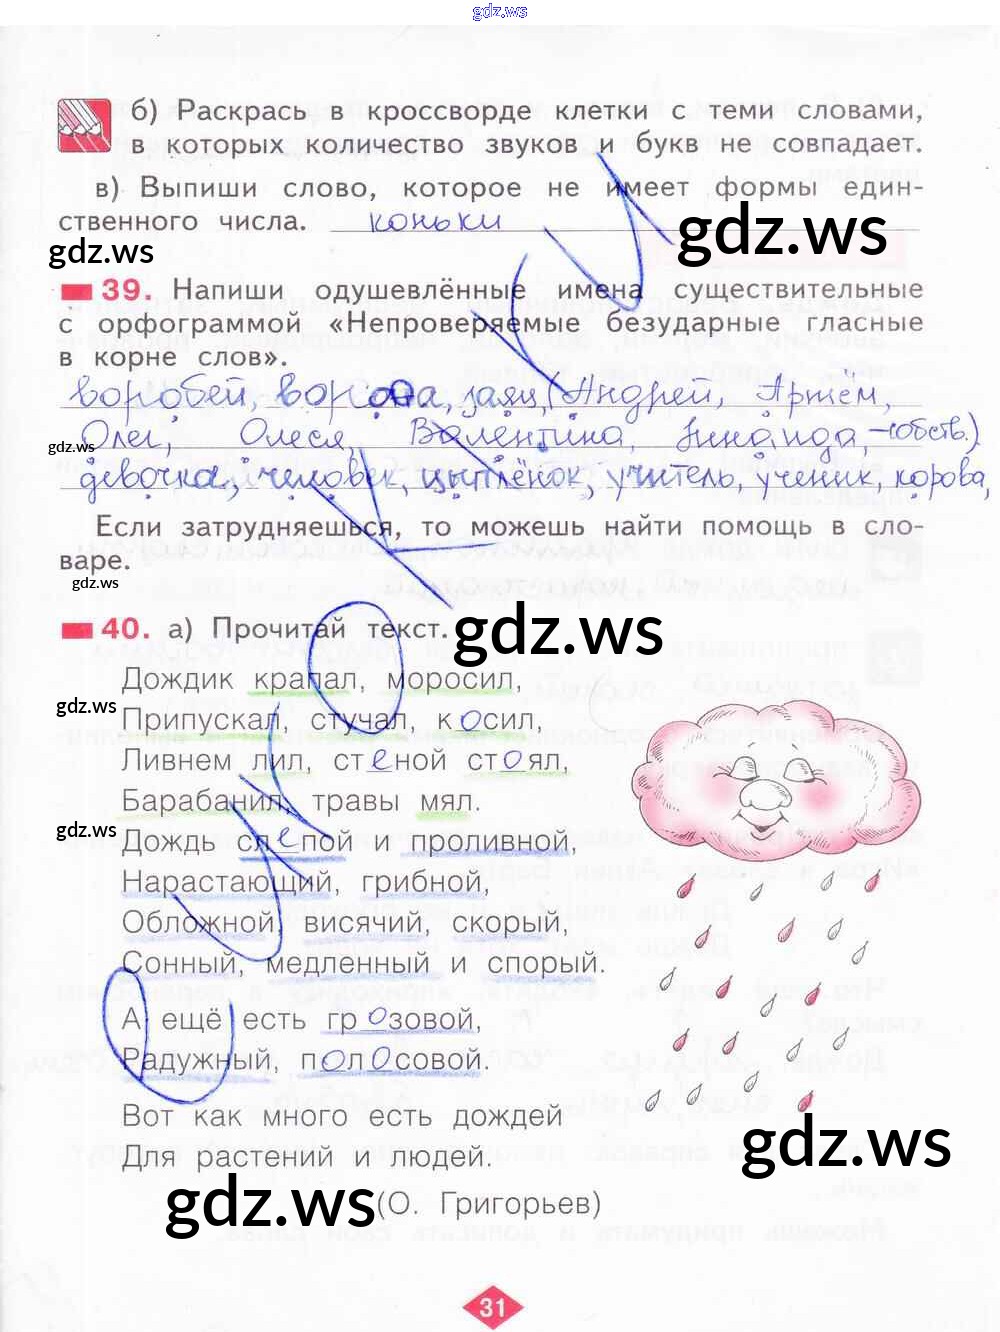 gdz.ws
б) Раскрась в кроссворде клетки с теми словами,
в которых количество звуков и букв не совпадает.
в) Выпиши слово, которое не имеет формы един-
ственного числа. коньки
gdz.ws
gdz.ws
39. Напиши одушевлённые имена существительные
с орфограммой «Непроверяемые безударные гласные
в корне слов».
воробей, ворона, заяц, (Андрей, Артём,
gdz.ws
Олег, Олеся, Валентина, Зинаида, – (собств.)
девочка, человек, цыплёнок, учитель, ученик, корова,
Если затрудняешься, то можешь найти помощь в сло-
варе.
gdz.ws
40. а) Прочитай текст.
gdz.ws
Дождик крапал, моросил,
gdz.ws
Припускал, стучал, косил,
Ливнем лил, стеной стоял,
Барабанил, травы мял.
gdz.ws
Дождь слепой и проливной,
Нарастающий, грибной,
Обложной, висячий, скорый,
Сонный, медленный и спорый.
А ещё есть грозовой,
Радужный, полосовой.
Вот как много есть дождей
Для растений и людей.
gdz.ws
gdz.ws
(О. Григорьев)
31